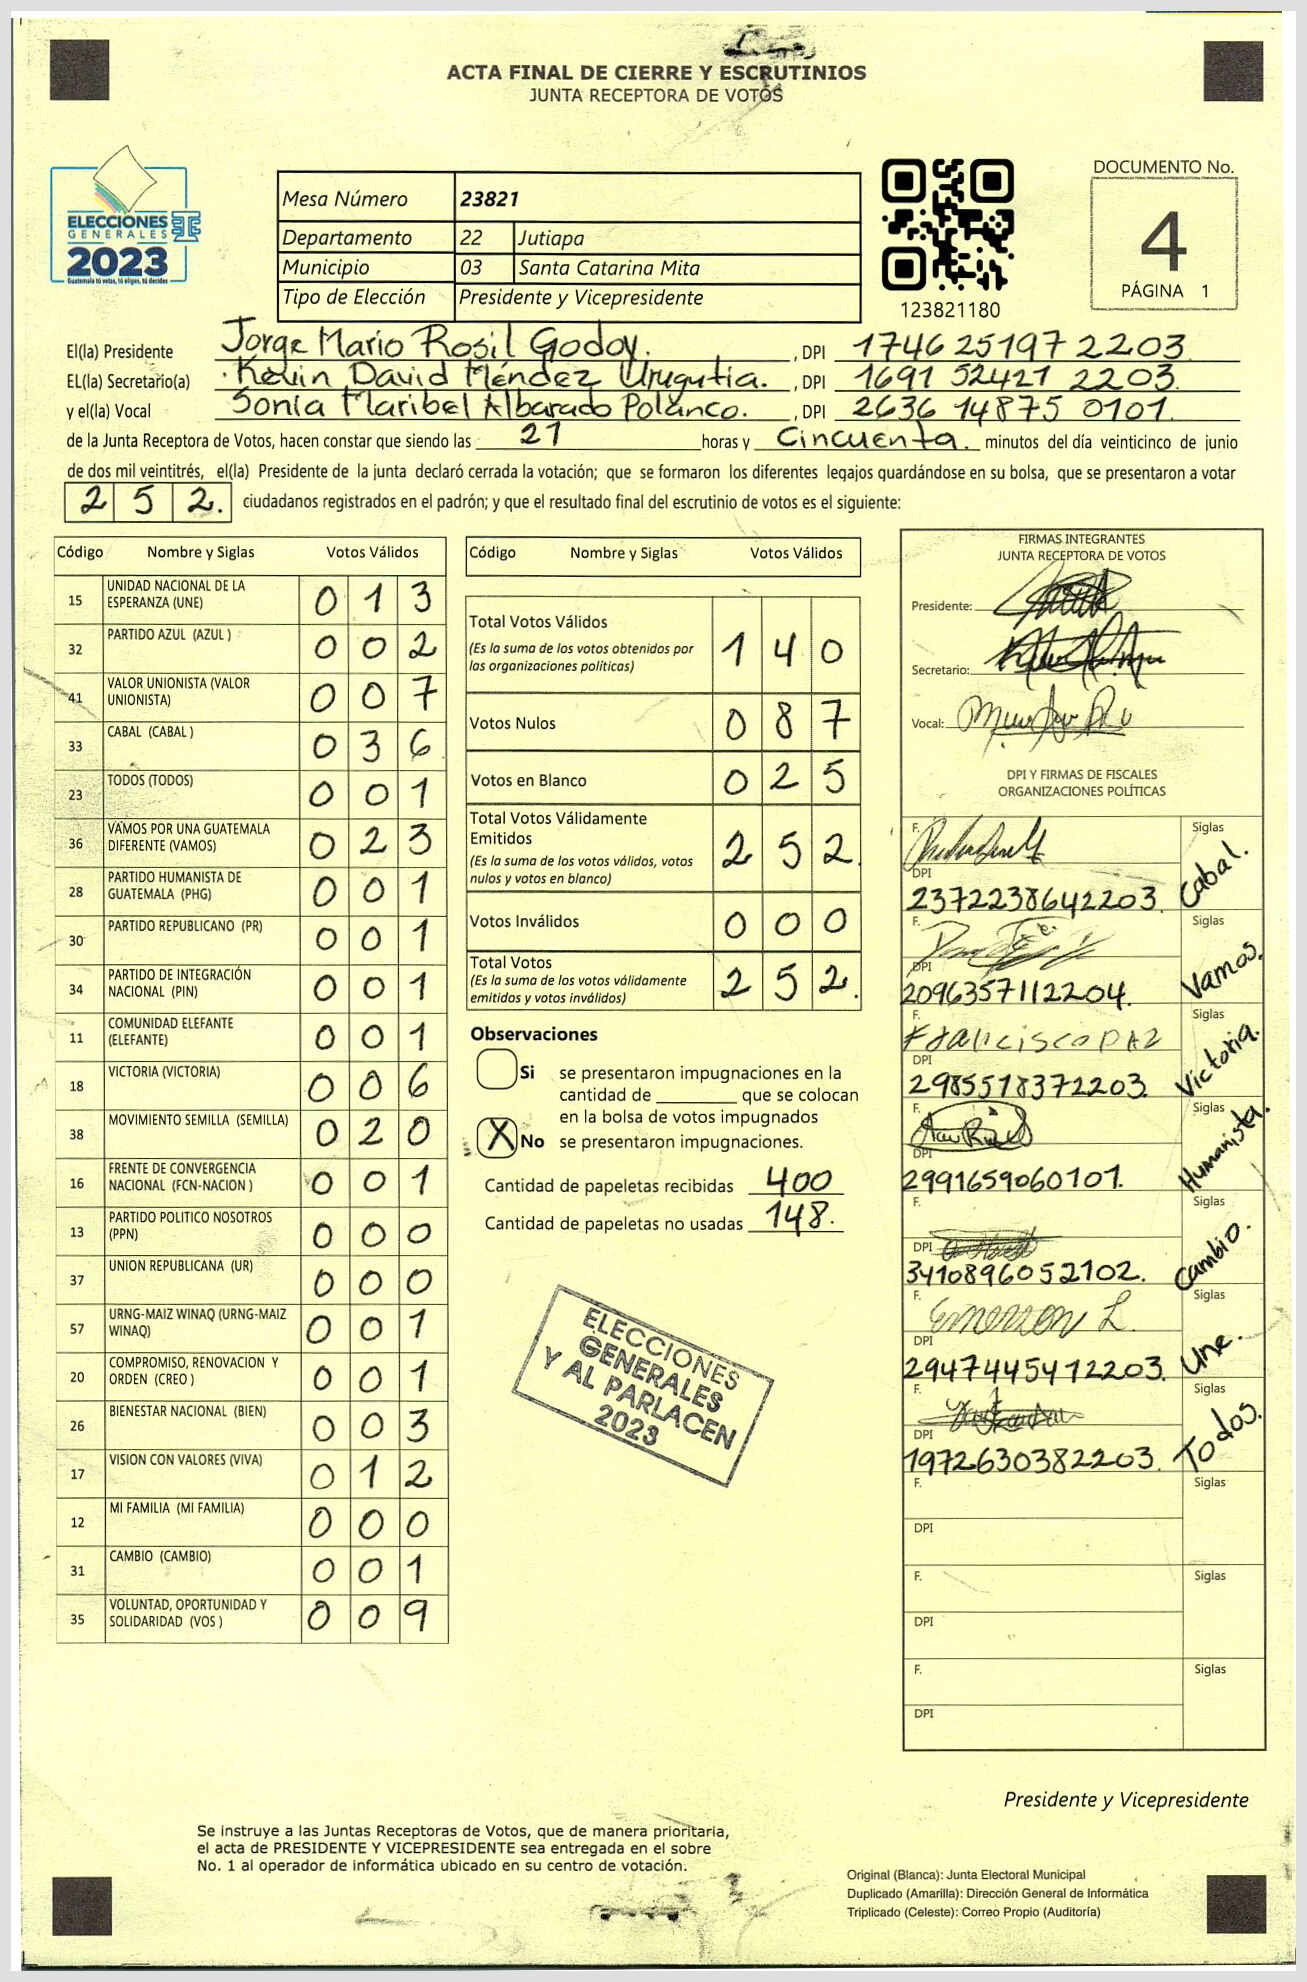 ACTA FINAL DE CIERRE Y ESCRUTINIOS
JUNTA RECEPTORA DE VOTOS
ELECCIONES
GENERALES
2023
Guatemala tú votas, tú eliges, tú decides
Mesa Número 23821
Departamento 22 Jutiapa
Municipio 03 Santa Catarina Mita
Tipo de Elección Presidente y Vicepresidente
123821180
DOCUMENTO No.
4
PÁGINA 1
El(la) Presidente Jorge Mario Rosil Godoy. , DPI 1746 25197 2203
EL(la) Secretario(a) Kevin David Méndez Urugutia. , DPI 1691 52421 2203.
y el(la) Vocal Sonia Maribel Albarado Polanco. , DPI 2636 14875 0101.
de la Junta Receptora de Votos, hacen constar que siendo las 21 horas y Cincuenta. minutos del día veinticinco de junio
de dos mil veintitrés, el(la) Presidente de la junta declaró cerrada la votación; que se formaron los diferentes legajos quardándose en su bolsa, que se presentaron a votar
2 5 2. ciudadanos registrados en el padrón; y que el resultado final del escrutinio de votos es el siguiente:
Código Nombre y Siglas Votos Válidos
15 UNIDAD NACIONAL DE LA ESPERANZA (UNE) 0 1 3
32 PARTIDO AZUL (AZUL ) 0 0 2
41 VALOR UNIONISTA (VALOR UNIONISTA) 0 0 7
33 CABAL (CABAL ) 0 3 6
23 TODOS (TODOS) 0 0 1
36 VAMOS POR UNA GUATEMALA DIFERENTE (VAMOS) 0 2 3
28 PARTIDO HUMANISTA DE GUATEMALA (PHG) 0 0 1
30 PARTIDO REPUBLICANO (PR) 0 0 1
34 PARTIDO DE INTEGRACIÓN NACIONAL (PIN) 0 0 1
11 COMUNIDAD ELEFANTE (ELEFANTE) 0 0 1
18 VICTORIA (VICTORIA) 0 0 6
38 MOVIMIENTO SEMILLA (SEMILLA) 0 2 0
16 FRENTE DE CONVERGENCIA NACIONAL (FCN-NACION ) 0 0 1
13 PARTIDO POLITICO NOSOTROS (PPN) 0 0 0
37 UNION REPUBLICANA (UR) 0 0 0
57 URNG-MAIZ WINAQ (URNG-MAIZ WINAQ) 0 0 1
20 COMPROMISO, RENOVACION Y ORDEN (CREO ) 0 0 1
26 BIENESTAR NACIONAL (BIEN) 0 0 3
17 VISION CON VALORES (VIVA) 0 1 2
12 MI FAMILIA (MI FAMILIA) 0 0 0
31 CAMBIO (CAMBIO) 0 0 1
35 VOLUNTAD, OPORTUNIDAD Y SOLIDARIDAD (VOS ) 0 0 9
Código Nombre y Siglas Votos Válidos
Total Votos Válidos 1 4 0
(Es la suma de los votos obtenidos por
las organizaciones políticas)
Votos Nulos 0 8 7
Votos en Blanco 0 2 5
Total Votos Válidamente
Emitidos 2 5 2.
(Es la suma de los votos válidos, votos
nulos y votos en blanco)
Votos Inválidos 0 0 0
Total Votos 2 5 2.
(Es la suma de los votos válidamente
emitidos y votos inválidos)
Observaciones
Si se presentaron impugnaciones en la
cantidad de ________ que se colocan
en la bolsa de votos impugnados
X No se presentaron impugnaciones.
Cantidad de papeletas recibidas 400
Cantidad de papeletas no usadas 148.
ELECCIONES
GENERALES
Y AL PARLACEN
2023
FIRMAS INTEGRANTES
JUNTA RECEPTORA DE VOTOS
Presidente:
Secretario:
Vocal:
DPI Y FIRMAS DE FISCALES
ORGANIZACIONES POLÍTICAS
F. Siglas
DPI
2372238642203. Cabal.
F. Siglas
DPI
2096357112204. Vamos.
F. Siglas
DPI
2985518372203. Victoria.
F. Siglas
DPI
2991659060101. Humanista.
F. Siglas
DPI
3410896052102. Cambio.
F. Emerson L. Siglas
DPI
2947445412203. Une.
F. Siglas
DPI
1972630382203. Todos.
F. Siglas
DPI
F. Siglas
DPI
F. Siglas
DPI
Presidente y Vicepresidente
Se instruye a las Juntas Receptoras de Votos, que de manera prioritaria,
el acta de PRESIDENTE Y VICEPRESIDENTE sea entregada en el sobre
No. 1 al operador de informática ubicado en su centro de votación.
Original (Blanca): Junta Electoral Municipal
Duplicado (Amarilla): Dirección General de Informática
Triplicado (Celeste): Correo Propio (Auditoría)